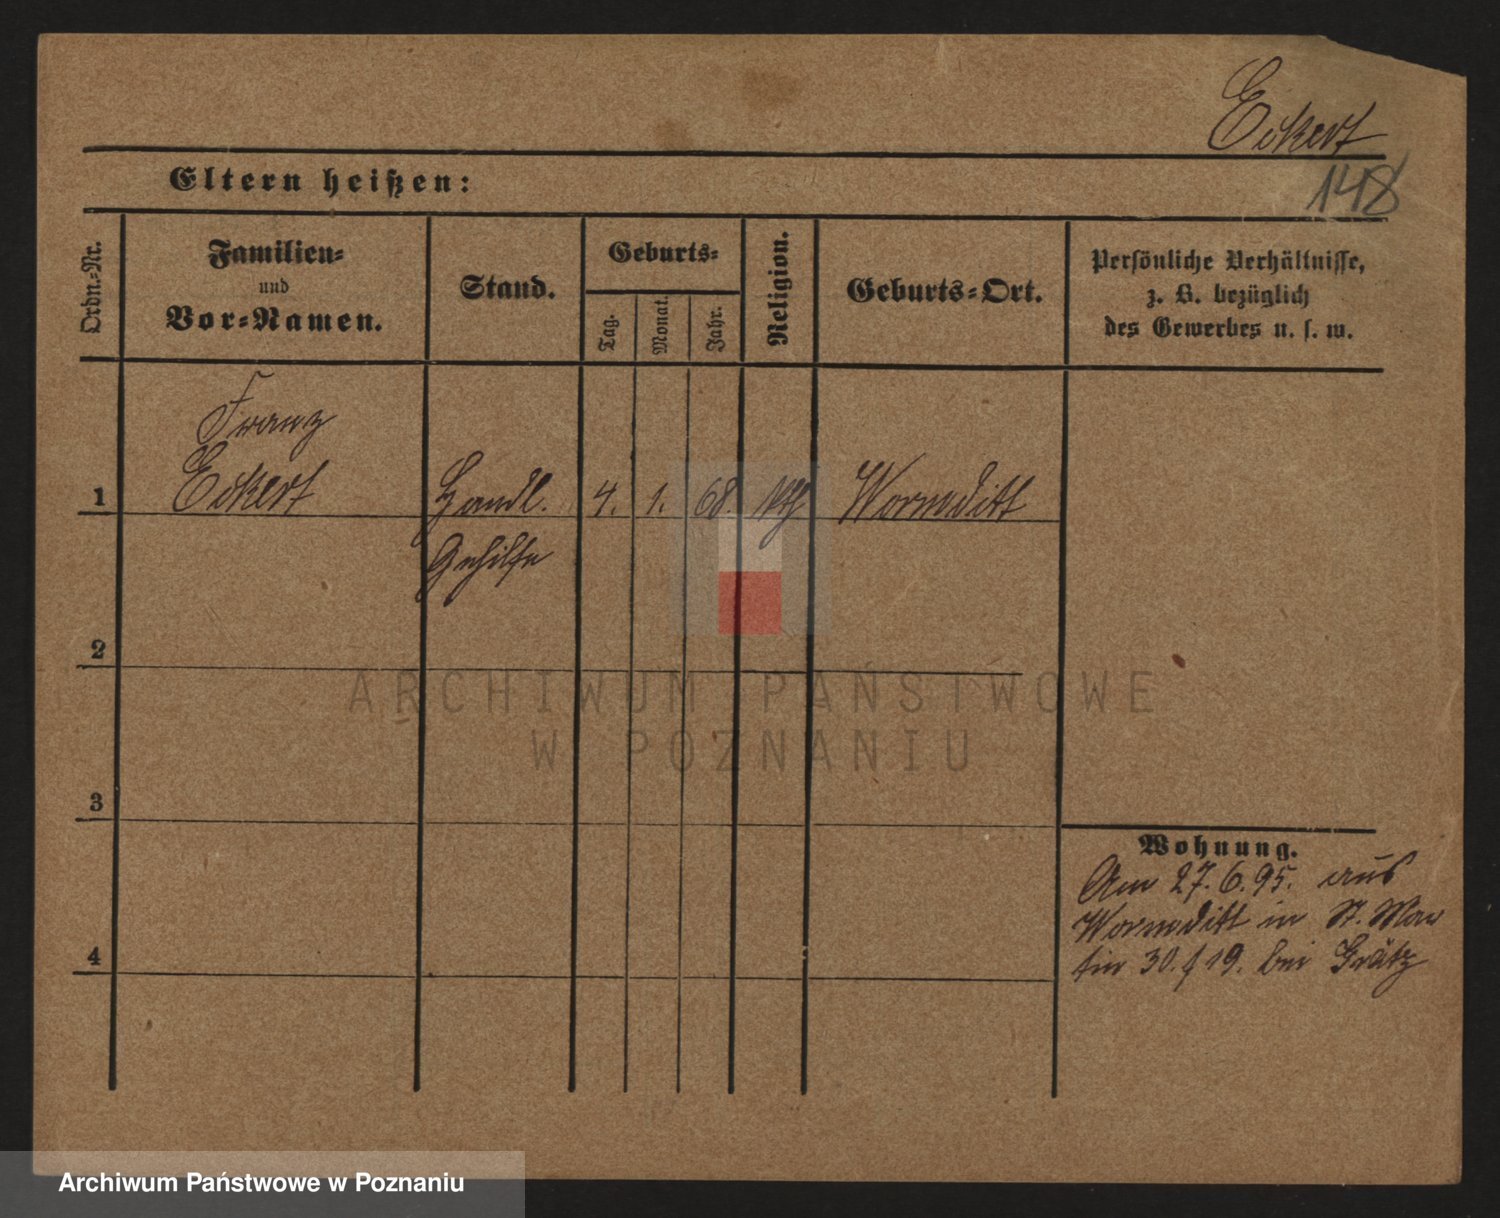 Eckert
148
Eltern heißen:
Ordn.-Nr.
Familien-
und
Vor-Namen.
Stand.
Geburts-
Tag.
Monat.
Jahr.
Religion.
Geburts-Ort.
Persönliche Verhältnisse,
z. B. bezüglich
des Gewerbes u. s. w.
Franz
1 Eckert Handl. 4. 1. 68. kth Wormditt
Gehilfe
2
3
4
Wohnung.
Am 27.6.95. aus
Wormditt in St. Mar
tin 30. f 19. bei Grätz
ARCHIWUM PAŃSTWOWE
W POZNANIU
Archiwum Państwowe w Poznaniu